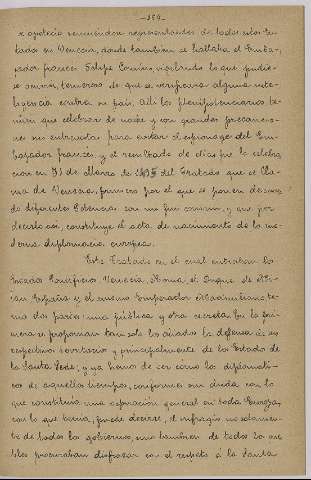 -154-
representantes de todos
tados en Venecia, donde tambien se hallaba el Emba-
jador frances Felipe Comines vigilando lo que pudie-
se ocurrir, temeroso de que se verificara alguna inte-
ligencia contra su pais. Alli los plenipotenciarios te-
nian que celebrar de noche y con grandes precaucio-
nes sus entrevistas para evitar el espionage del Em-
bajador frances y el resultado de ellas fue la celebra-
cion en 31 de Marzo de del Tratado que se lla-
ma de Venecia, primero por el que se ponen de acuerdo
diferentes Potencias con un fin comun, y que por
decirlo asi, constituye el acta de nacimiento de la mo-
derna diplomacia europea.
Este Tratado en el cual entraban la
Santa Pontificia Venecia, Roma el Duque de Mi-
lan España y el mismo Emperador Maximiliano te-
nia dos partes una publica y otra secreta. En la pri-
mera se proponian tan solo los aliados la defensa de sus
respectivos territorios y principalmente de los Estados de
la Santa Sede; que hemos de ver como los diplomati-
cos de aquellos tiempos, conformes sin duda con lo
que constituia una aspiración general en toda Europa,
con lo que tenia, puede decirse, el sufragio no solamen-
te de todos los gobiernos, sino tambien de todos los pue-
blos procuraban disfrazar con el respeto á la Santa